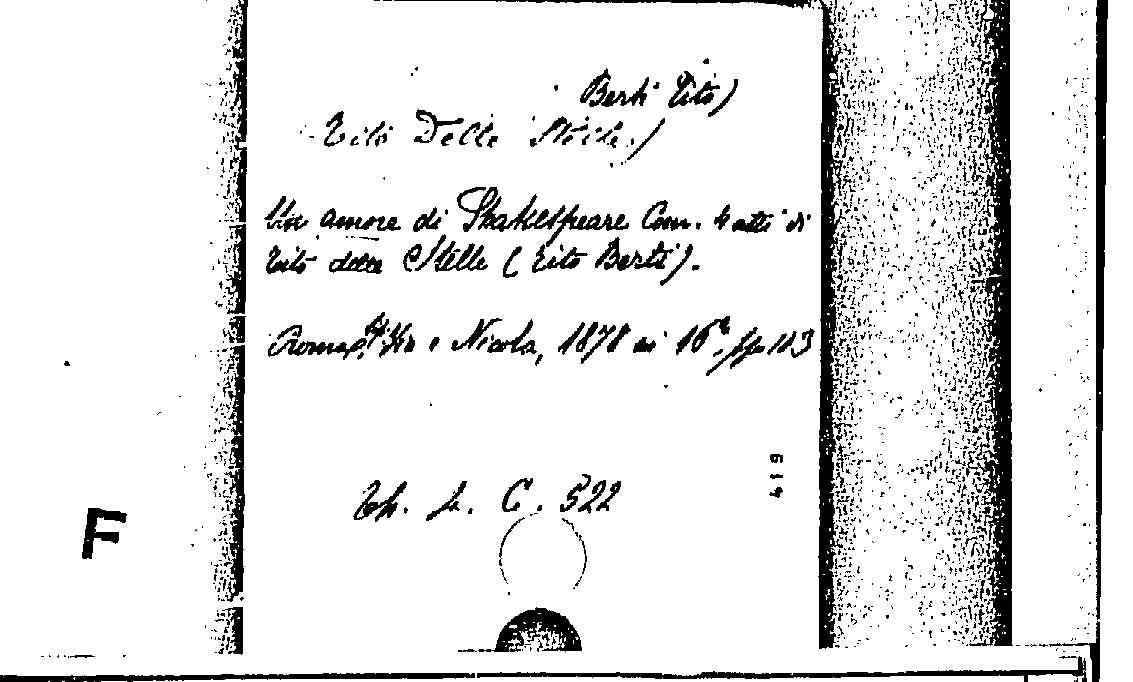 Berti Tito)
Tito Delle Stelle)
Un amore di Shakespeare Com. 4 atti di
Tito delle Stelle (Tito Berti).
Roma, e Nicola, 1878 in 16°, pp 103
419
Th. p. C. 522
F